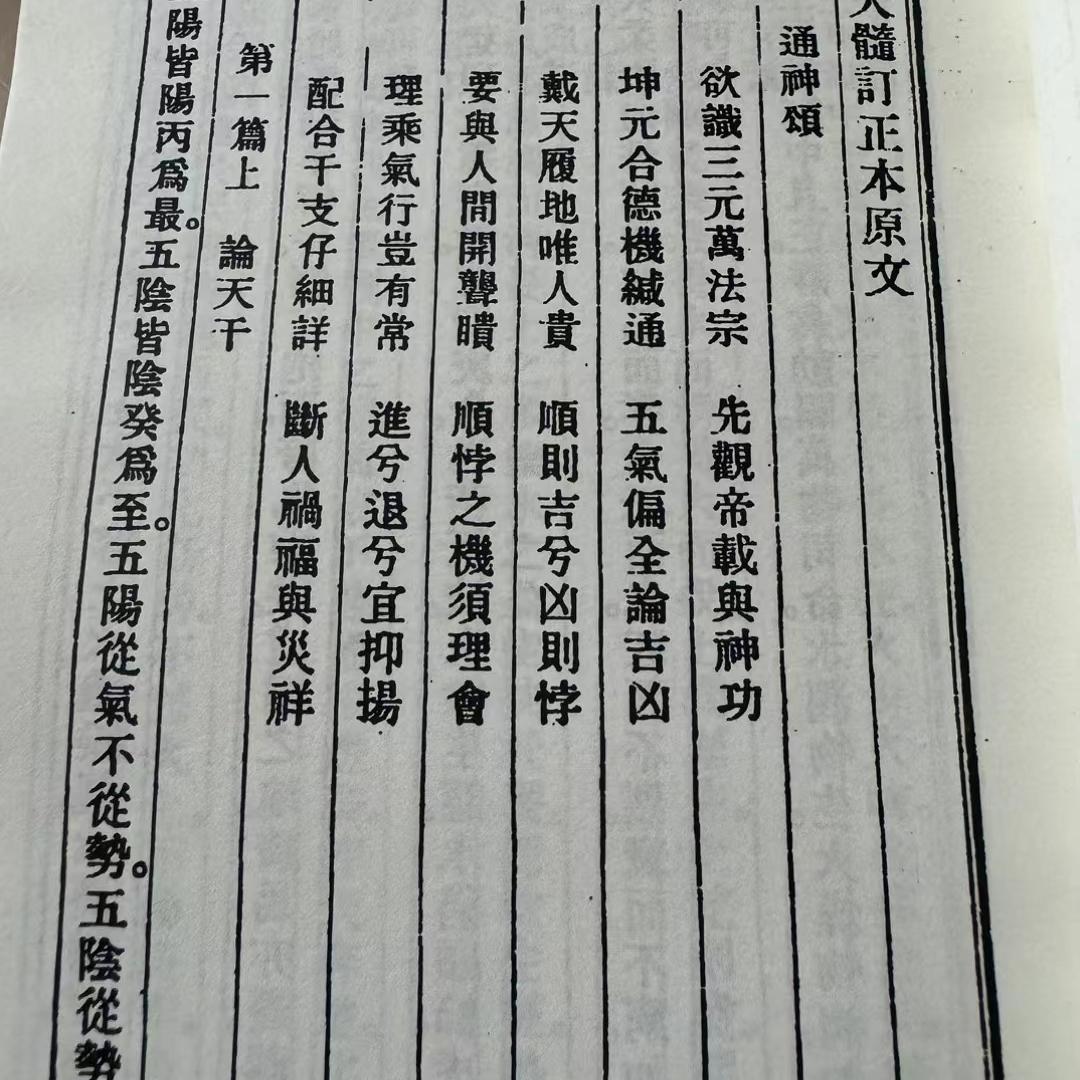 髓訂正本原文
通神頌
欲識三元萬法宗 先觀帝載與神功
坤元合德機緘通 五氣偏全論吉凶
戴天履地唯人貴 順則吉兮凶則悖
要與人間開聾瞶 順悖之機須理會
理乘氣行豈有常 進兮退兮宜抑揚
配合干支仔細詳 斷人禍福與災祥
第一篇上 論天干
陽皆陽丙爲最。五陰皆陰癸爲至。五陽從氣不從勢。五陰從勢